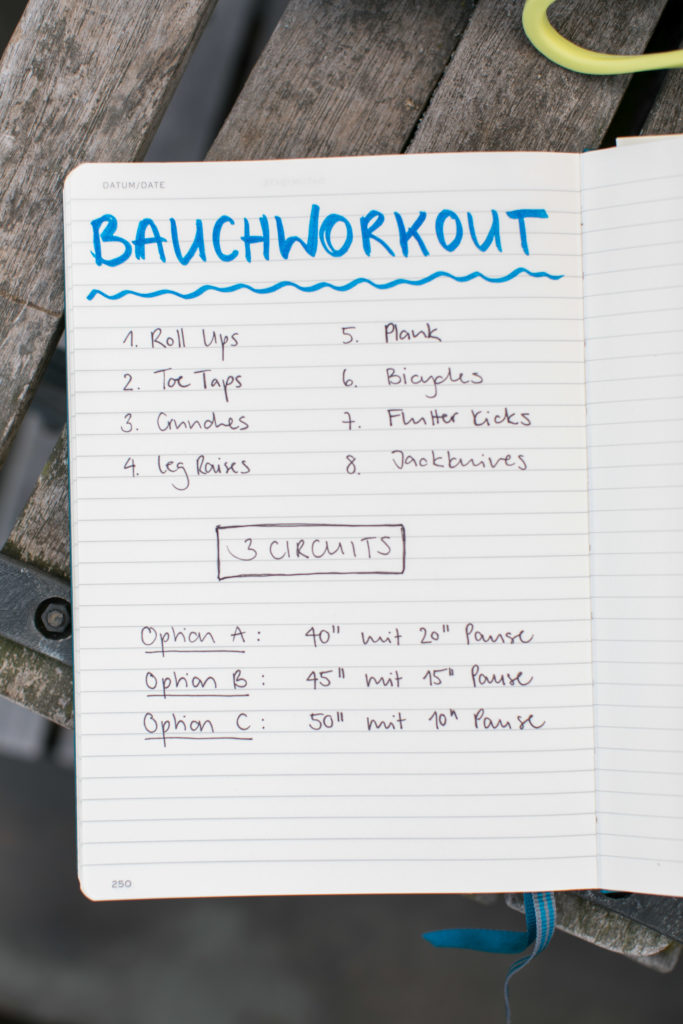 DATUM/DATE
BAUCHWORKOUT
1. Roll Ups
2. Toe Taps
3. Crunches
4. Leg Raises
5. Plank
6. Bicycles
7. Flutter Kicks
8. Jackknives
3 CIRCUITS
Option A: 40" mit 20" Pause
Option B: 45" mit 15" Pause
Option C: 50" mit 10" Pause
250